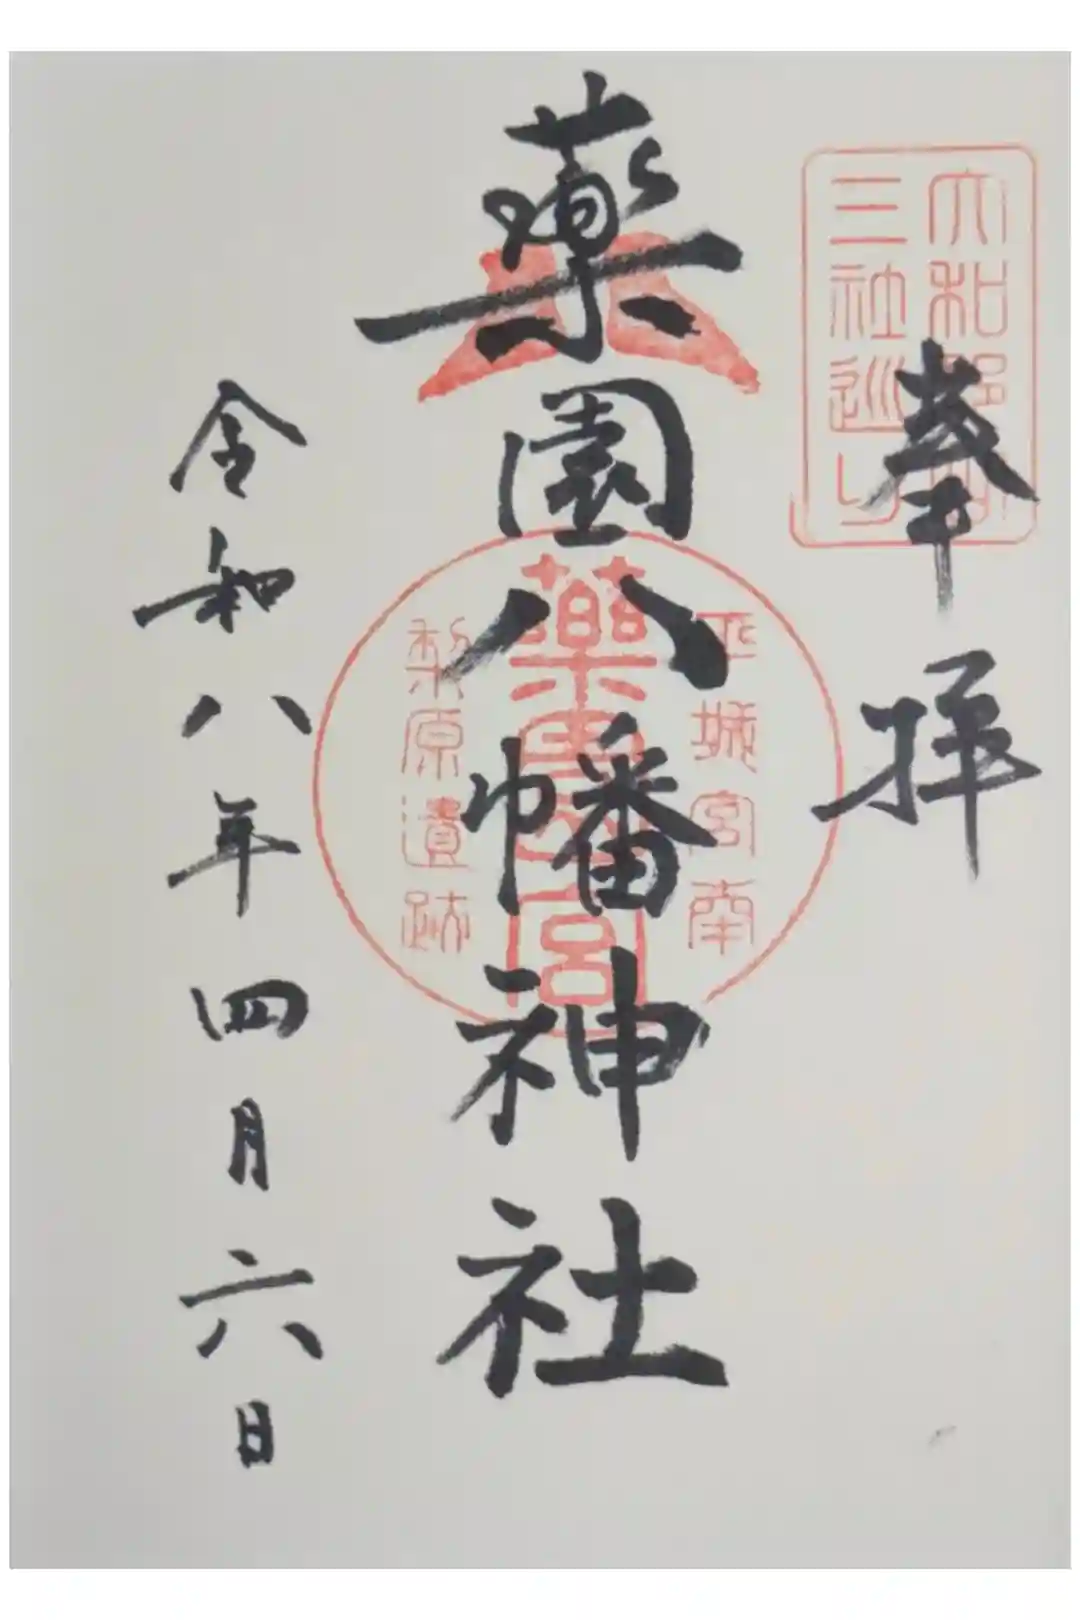 大和郡山
三社巡り
奉拝
平城宮南
薬園八幡神社
薬園八宮
梨原遺跡
令和八年四月六日